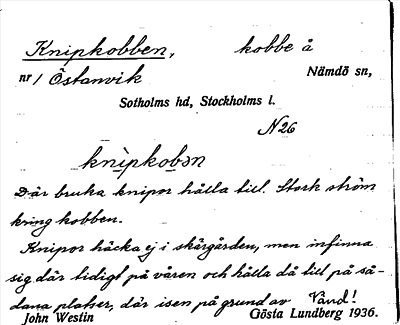 Knipkobben, kobbe å
nr 1 Östanvik Nämdö sn,
Sotholms hd, Stockholms l.
N26
knìpkobən
Där bruka knipor hålla till. Stark ström
kring kobben.
Knipor häcka ej i skärgården, men infinna
sig där tidigt på våren och hålla då till på så-
dana platser, där isen på grund av Vänd!
John Westin Gösta Lundberg 1936.